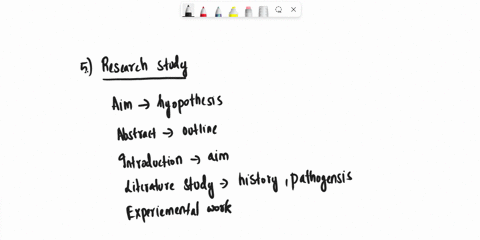 5.) Research study
Aim → hyopothesis
Abstract → outline
Introduction → aim
Literature study → history, pathogensis
Experiemental work